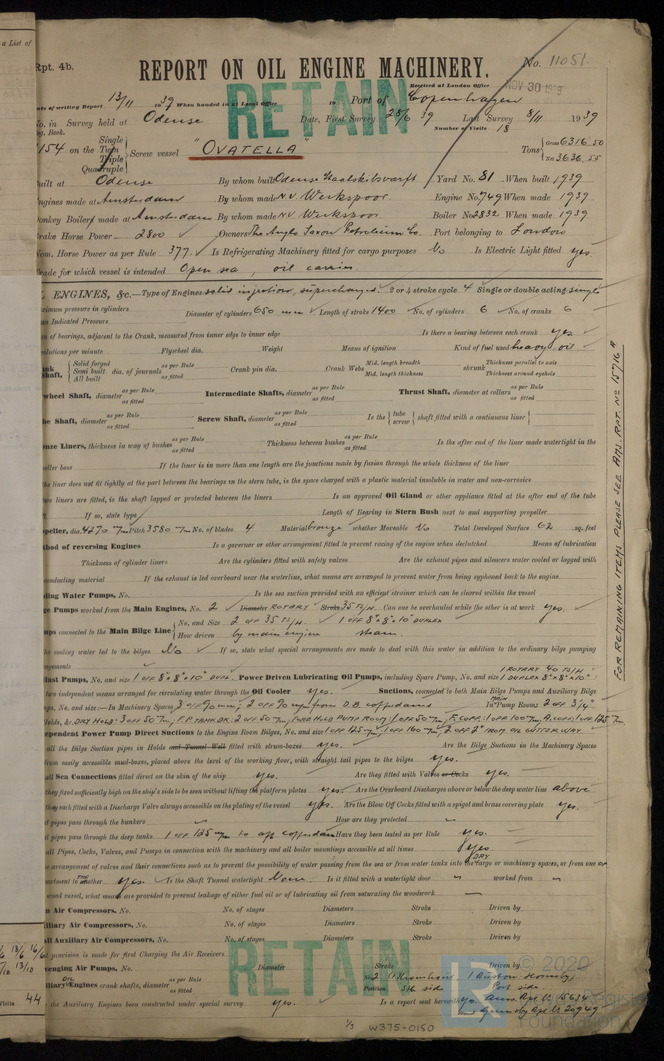 a List of
Rpt. 4b.
No. 11051.
REPORT ON OIL ENGINE MACHINERY.
Received at London Office NOV 30 1939
Date of writing Report 13/11 1939 When handed in at Local Office Port of Copenhagen
RETAIN
No. in Survey held at Odense Date, First Survey 28/6 39 Last Survey 8/11 1939
Reg. Book. Number of Visits 18
Single
154 on the Twin Screw vessel "OVATELLA" Tons Gross 6316.50
Triple Net 3636.55
Quadruple
Built at Odense By whom built Odense Staalskibsværft Yard No. 81 When built 1939
Engines made at Amsterdam By whom made N.V. Werkspoor Engine No. 749 When made 1939
Donkey Boilers made at Amsterdam By whom made N.V. Werkspoor Boiler No. 2832 When made 1939
Brake Horse Power 2800 Owners The Anglo Saxon Petroleum Co. Port belonging to London
Nom. Horse Power as per Rule 377. Is Refrigerating Machinery fitted for cargo purposes No Is Electric Light fitted yes.
Trade for which vessel is intended Open sea, oil carrier
ENGINES, &c.—Type of Engines solid injection, supercharged 2 or 4 stroke cycle 4 Single or double acting single
Maximum pressure in cylinders Diameter of cylinders 650 mm Length of stroke 1400 No. of cylinders 6 No. of cranks 6
Mean Indicated Pressure
of bearings, adjacent to the Crank, measured from inner edge to inner edge Is there a bearing between each crank yes
Revolutions per minute Flywheel dia. Weight Means of ignition Kind of fuel used heavy oil
Crank Shaft, Solid forged Semi built All built dia. of journals as per Rule as fitted Crank pin dia. Crank Webs Mid. length breadth Mid. length thickness shrunk Thickness parallel to axis Thickness around eyehole
Flywheel Shaft, diameter as per Rule as fitted Intermediate Shafts, diameter as per Rule as fitted Thrust Shaft, diameter at collars as per Rule as fitted
Tube Shaft, diameter as per Rule as fitted Screw Shaft, diameter as per Rule as fitted Is the tube screw shaft fitted with a continuous liner
Bronze Liners, thickness in way of bushes as per Rule as fitted Thickness between bushes as per Rule as fitted Is the after end of the liner made watertight in the
propeller boss If the liner is in more than one length are the junctions made by fusion through the whole thickness of the liner
the liner does not fit tightly at the part between the bearings in the stern tube, is the space charged with a plastic material insoluble in water and non-corrosive
two liners are fitted, is the shaft lapped or protected between the liners Is an approved Oil Gland or other appliance fitted at the after end of the tube
If so, state type Length of Bearing in Stern Bush next to and supporting propeller
Propeller, dia. 4270 mm Pitch 3580 mm No. of blades 4 Material bronze whether Moveable No Total Developed Surface 62 sq. feet
Method of reversing Engines Is a governor or other arrangement fitted to prevent racing of the engine when declutched Means of lubrication
Thickness of cylinder liners Are the cylinders fitted with safety valves Are the exhaust pipes and silencers water cooled or lagged with
conducting material If the exhaust is led overboard near the waterline, what means are arranged to prevent water from being syphoned back to the engine
Cooling Water Pumps, No. Is the sea suction provided with an efficient strainer which can be cleared within the vessel
Bilge Pumps worked from the Main Engines, No. 2 Diameter ROTARY Stroke 35 TS/H. Can one be overhauled while the other is at work yes.
Pumps connected to the Main Bilge Line No. and Size 2 OFF 35 TS/H. 1 OFF 8" x 8" x 10" DUPLEX
How driven by main engine steam.
Is the cooling water led to the bilges No If so, state what special arrangements are made to deal with this water in addition to the ordinary bilge pumping
arrangements
Ballast Pumps, No. and size 1 OFF 8" x 8" x 10" DUPL. Power Driven Lubricating Oil Pumps, including Spare Pump, No. and size 1 ROTARY 40 TS/H 1 DUPLEX 8" x 8" x 10"
two independent means arranged for circulating water through the Oil Cooler yes. Suctions, connected to both Main Bilge Pumps and Auxiliary Bilge
Pumps, No. and size:—In Machinery Spaces 3 off 90 m/m, 2 off 90 m/m from D.B. cofferdams In MAIN Pump Rooms 2 OFF 3¼"
Holds, &c. DRY HOLD: 3 OFF 50 m/m, F.P. TANK DR: 2 OFF 50 m/m, FWD HOLD PUMP ROOM 1 OFF 50 m/m, F. COFF: 1 OFF 100 m/m, A. COFF: 1 OFF 125 m/m
Independent Power Pump Direct Suctions to the Engine Room Bilges, No. and size 1 OFF 125 m/m, 1 OFF 100 m/m, 2 OFF 2" FROM OIL GUTTER WAY
all the Bilge Suction pipes in Holds and Tunnel Well fitted with strum-boxes yes. Are the Bilge Suctions in the Machinery Spaces
from easily accessible mud-boxes, placed above the level of the working floor, with straight tail pipes to the bilges yes.
all Sea Connections fitted direct on the skin of the ship yes. Are they fitted with Valves or Cocks yes.
they fixed sufficiently high on the ship's side to be seen without lifting the platform plates yes Are the Overboard Discharges above or below the deep water line above
they each fitted with a Discharge Valve always accessible on the plating of the vessel yes. Are the Blow Off Cocks fitted with a spigot and brass covering plate yes.
pipes pass through the bunkers How are they protected
pipes pass through the deep tanks 1 off 125 m/m to aft cofferdam Have they been tested as per Rule yes.
all Pipes, Cocks, Valves, and Pumps in connection with the machinery and all boiler mountings accessible at all times yes.
arrangement of valves and their connections such as to prevent the possibility of water passing from the sea or from water tanks into the DRY cargo or machinery spaces, or from one
compartment to another yes. Is the Shaft Tunnel watertight None. Is it fitted with a watertight door worked from
wood vessel, what means are provided to prevent leakage of either fuel oil or of lubricating oil from saturating the woodwork
Main Air Compressors, No. No. of stages Diameters Stroke Driven by
Auxiliary Air Compressors, No. No. of stages Diameters Stroke Driven by
Small Auxiliary Air Compressors, No. No. of stages Diameters Stroke Driven by
provision is made for first Charging the Air Receivers
RETAIN
Scavenging Air Pumps, No. Diameter Stroke Driven by
Auxiliary Engines crank shafts, diameter as per Rule as fitted No. 2 1 Ruston Hornsby
Position Stb side Port side.
the Auxiliary Engines been constructed under special survey yes. Is a report sent herewith yes. Ams. Rpt. No. 15614
Grimsby Rpt. No. 20949
FOR REMAINING ITEMS PLEASE SEE AMS. RPT. No 15716"
13/6 16/6
13/10
Visits 44
1/3
W375-0150
© 2020
Lloyd's Register
Foundation
LR